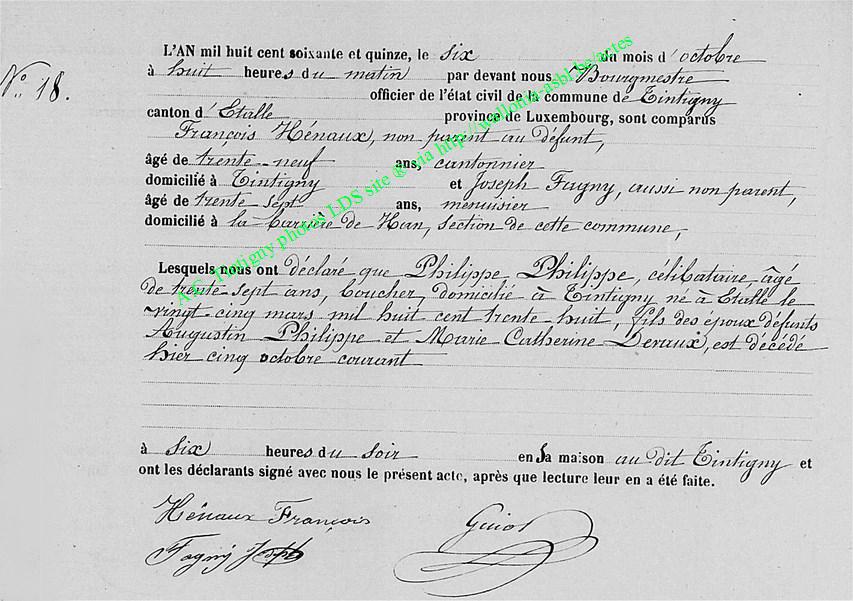 L'AN mil huit cent soixante et quinze, le six du mois d'octobre
N° 18.
à huit heures du matin par devant nous Bourgmestre
officier de l'état civil de la commune de Tintigny
canton d'Etalle province de Luxembourg, sont comparus
François Hénaux, non parent au défunt,
âgé de trente-neuf ans, cantonnier
domicilié à Tintigny et Joseph Fagny, aussi non parent,
âgé de trente sept ans, menuisier
domicilié à la Carrière de Han, section de cette commune,
Lesquels nous ont déclaré que Philippe, Philippe, célibataire, âgé
de trente-sept ans, boucher, domicilié à Tintigny né à Etalle le
vingt cinq mars mil huit cent trente huit, fils des époux défunts
Augustin Philippe et Marie Catherine Devaux, est décédé
hier cinq octobre courant
à six heures du soir en sa maison au dit Tintigny et
ont les déclarants signé avec nous le présent acte, après que lecture leur en a été faite.
Hénaux François
Guiot
Fagny Joseph
A.C. Tintigny photos LDS site ® via http://wallonia-asbl.be/actes